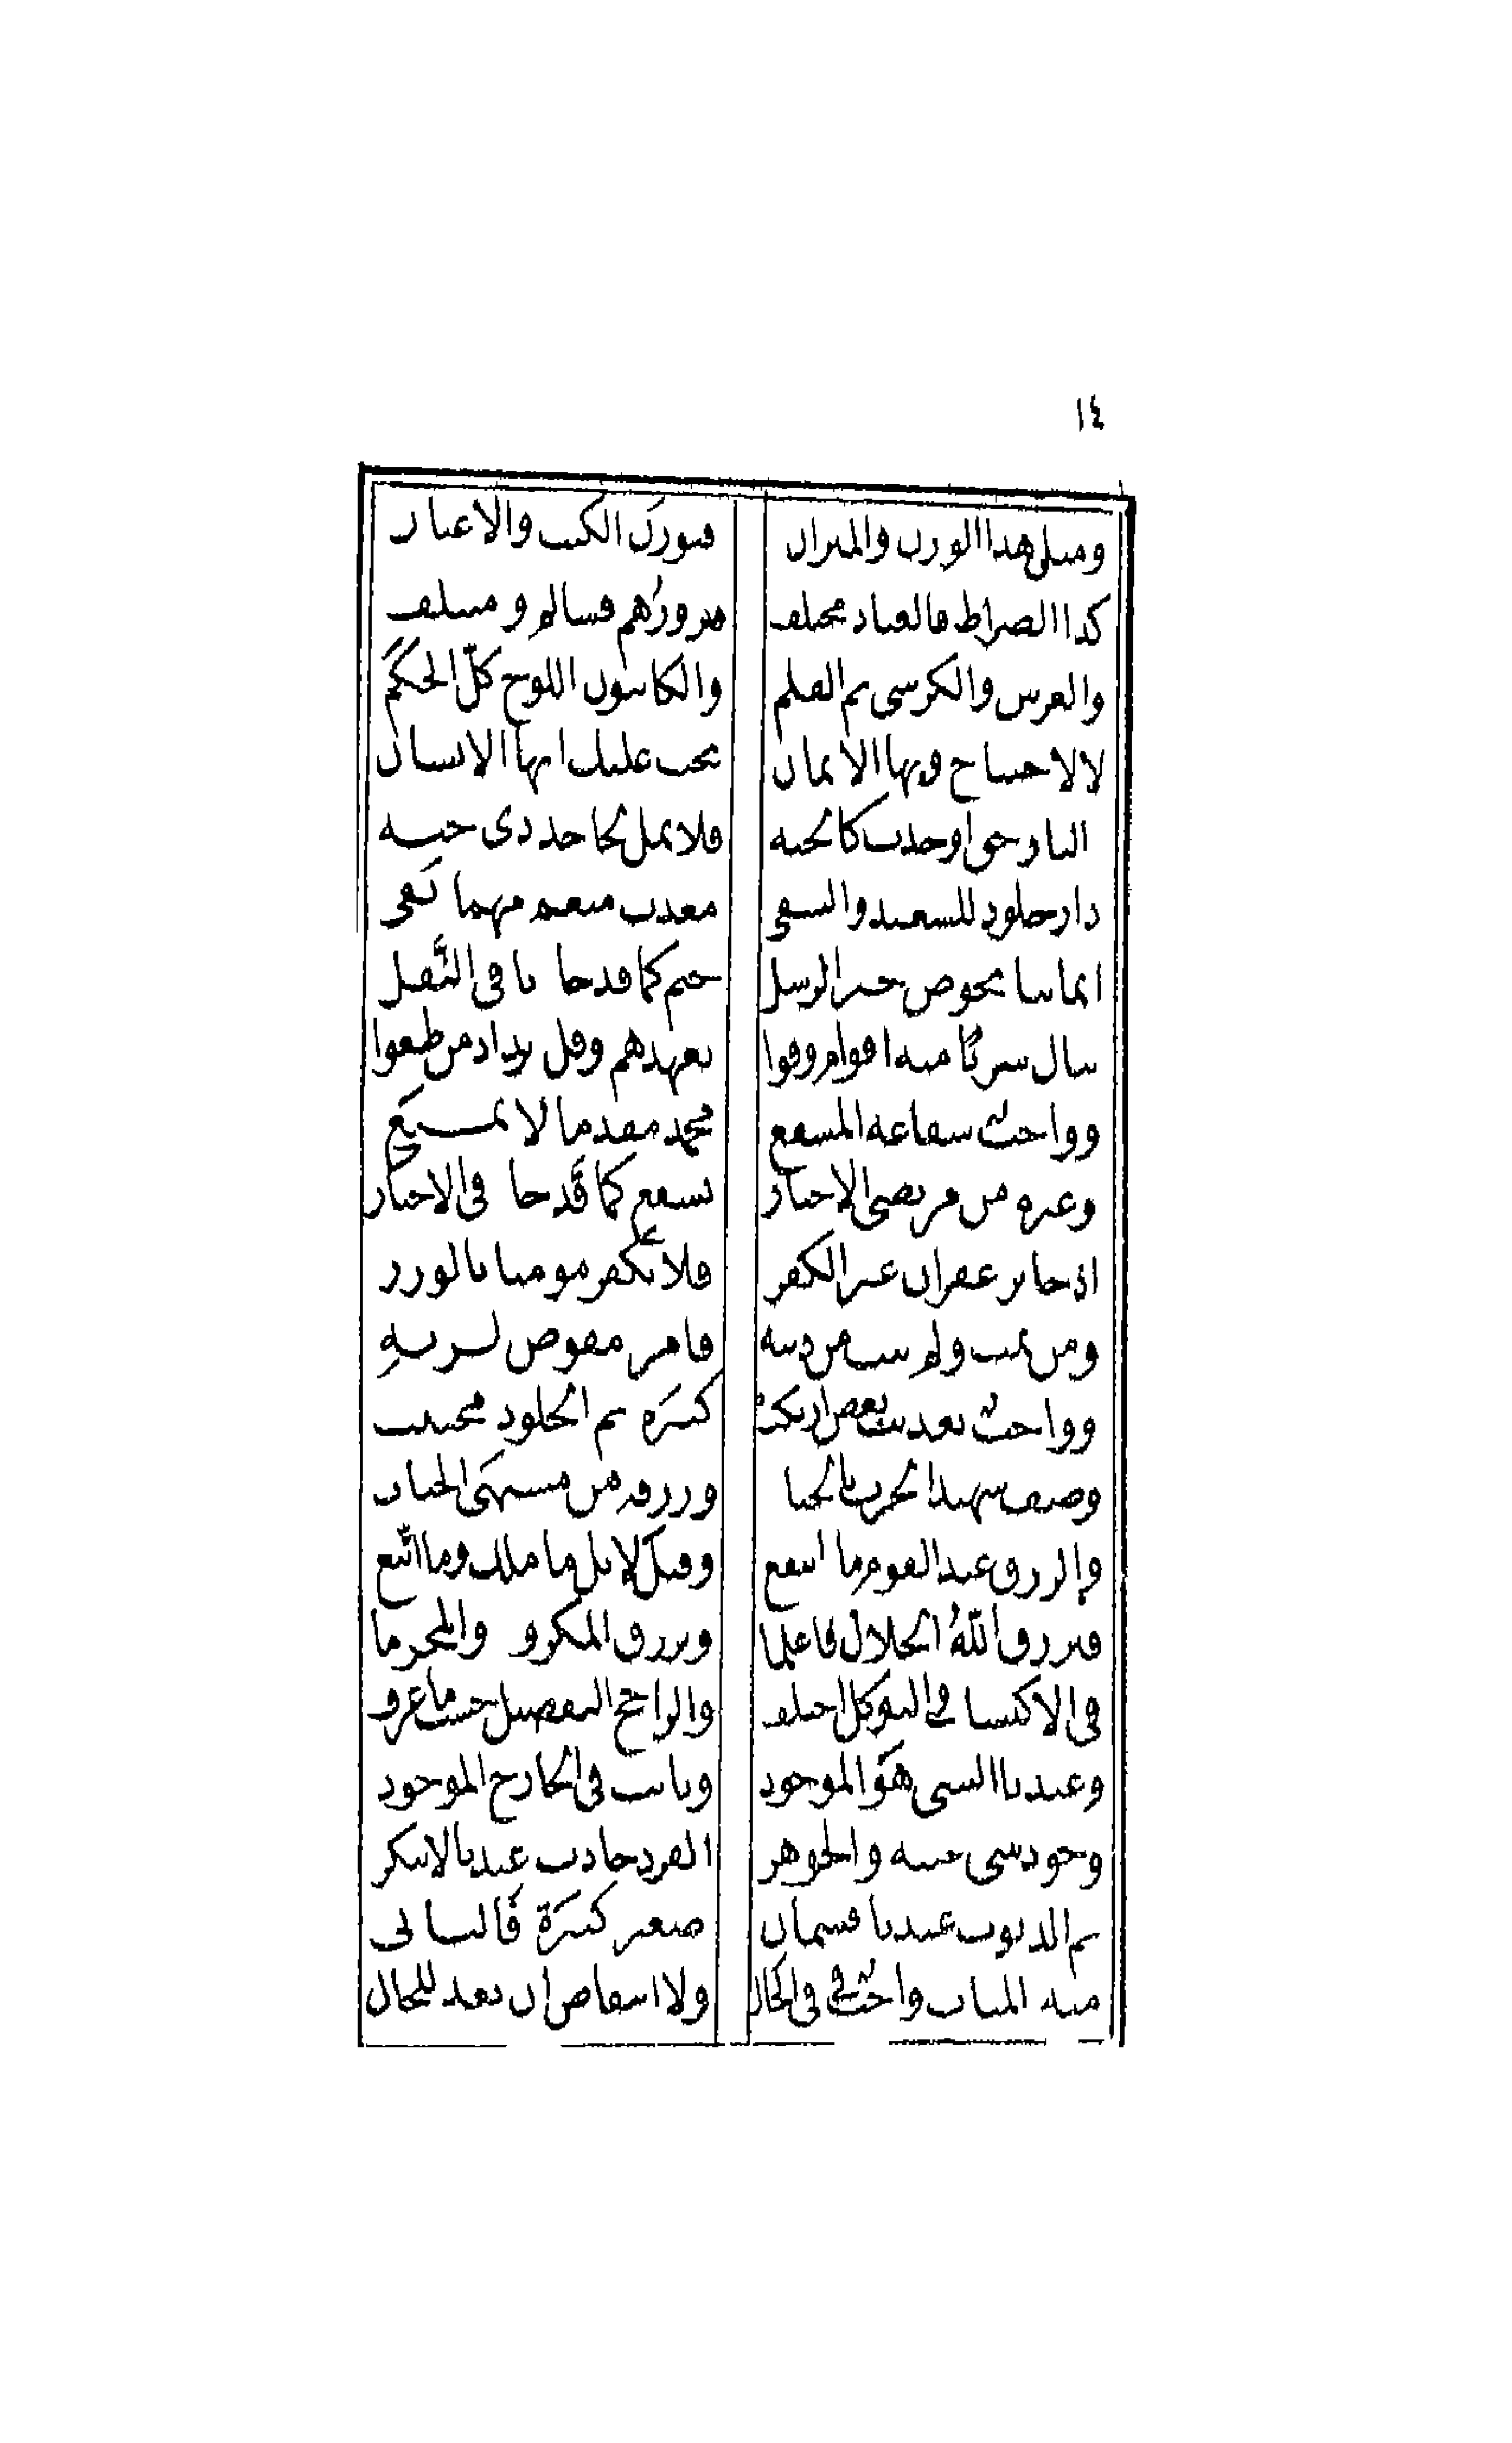 ١٤
ومثل هذا الوزن والميزان فتوزن الكتب والاعيان
كذا الصراط فالعباد مختلف مرورهم فسالم ومنتلف
والعرش والكرسي ثم القلم والكاتبون اللوح كل الحكم
لا لاحتياج وبها الايمان يجب عليك ايها الانسان
النار حق اوجدت كالجنه فلا تمل لجاحد ذي جنه
دار خلود للسعيد والشقي معذب منعم مهما بقي
ايماننا بحوض خير الرسل حتم كما قد جاءنا في النقل
ينال شربا منه اقوام وفوا بعهدهم وقل يذاد من طغوا
وواجب شفاعة المشفع محمد مقدما لا تمنع
وغيره من مرتضى الاخيار يشفع كما قد جا في الاخبار
اذ جائز غفران غير الكفر فلا نكفر مومنا بالوزر
ومن يمت ولم يتب من ذنبه فامره مفوض لربه
وواجب تعذيب بعض ارتكب كبيرة ثم الخلود مجتنب
وصف شهيد الحرب بالحياة ورزقه من مشتهى الجنات
والرزق عند القوم ما انتفع وقيل لا بل ما ملك وما اتبع
فيرزق الله الحلال فاعلما ويرزق المكروه والمحرما
في الاكتساب والتوكل اختلف والراجح التفصيل حسبما عرف
وعندنا الشي هو الموجود وثابت في الخارج الموجود
وجود شي عينه والجوهر الفرد حادث عندنا لا ينكر
ثم الذنوب عندنا قسمان صغيرة كبيرة فالثاني
منه المتاب واجب في الحال ولا انتقاض ان يعد للحال